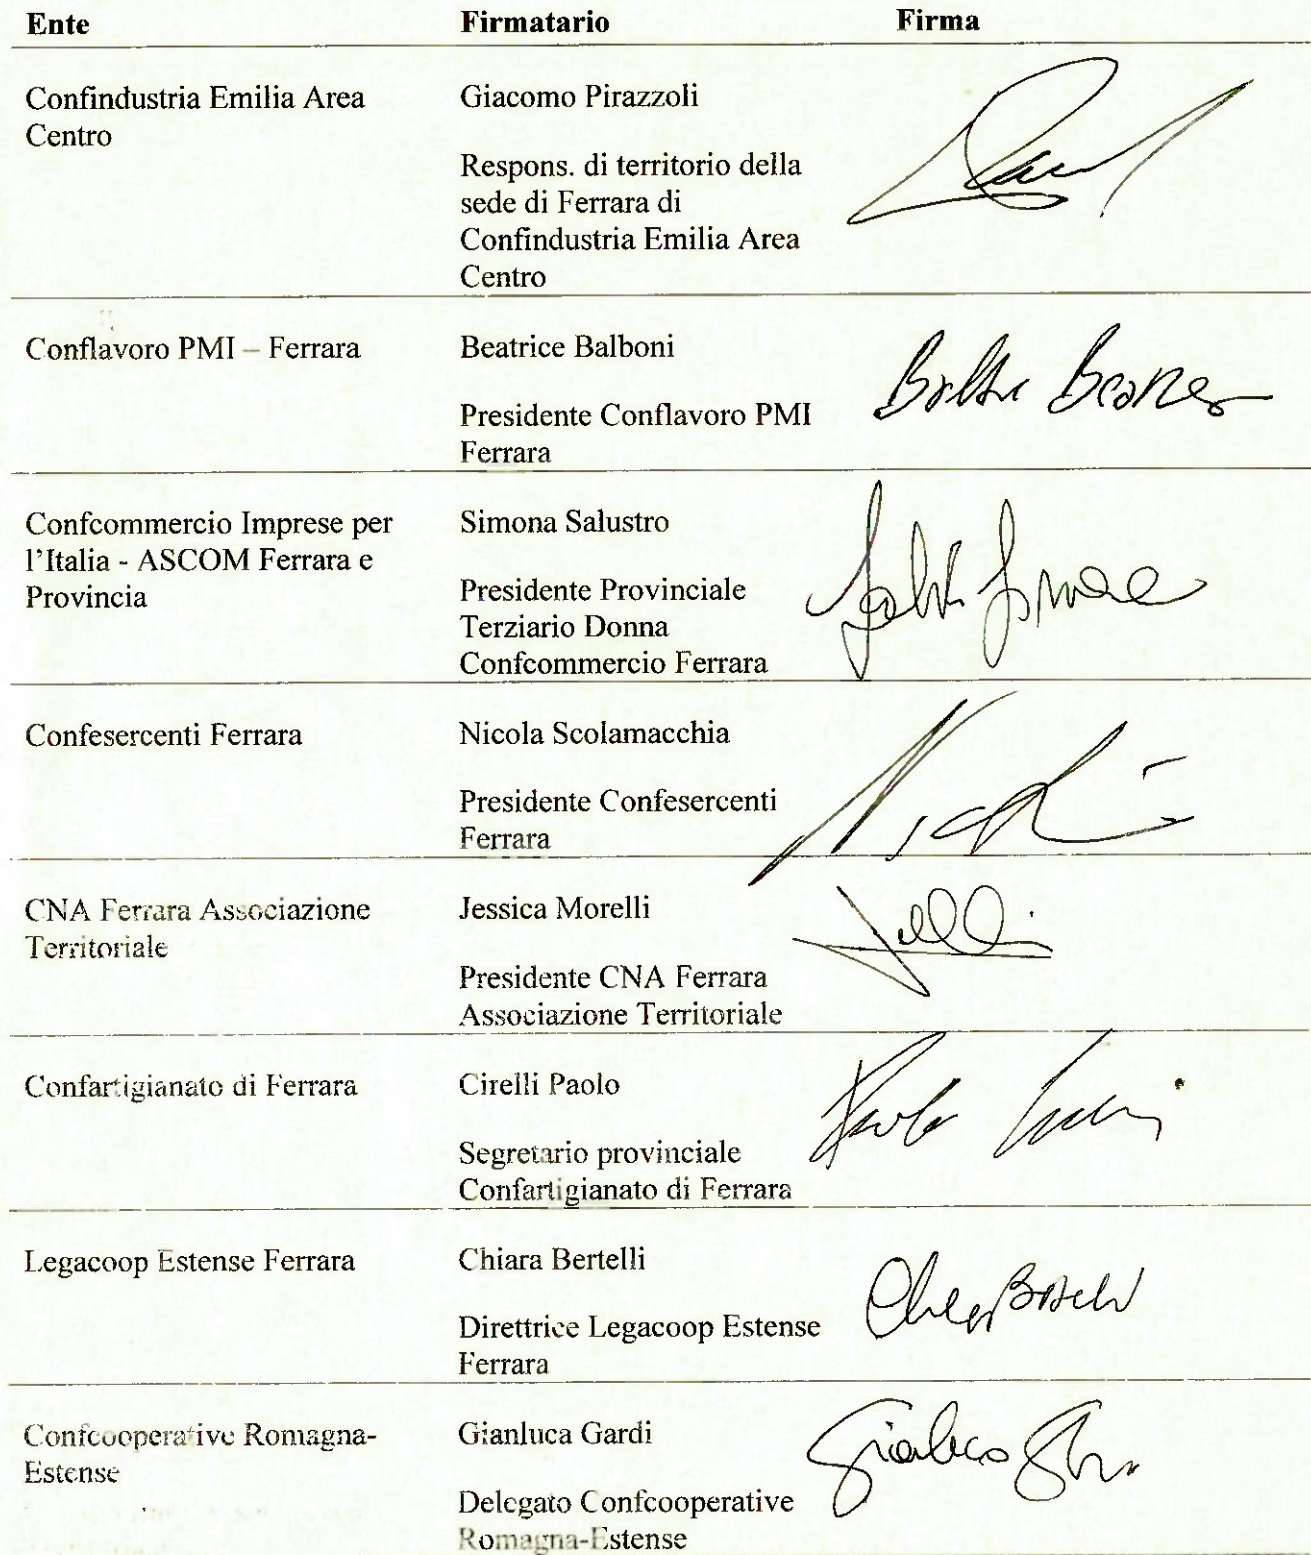 Ente Firmatario Firma
Confindustria Emilia Area
Centro
Giacomo Pirazzoli
Respons. di territorio della
sede di Ferrara di
Confindustria Emilia Area
Centro
Conflavoro PMI – Ferrara
Beatrice Balboni
Presidente Conflavoro PMI
Ferrara
Confcommercio Imprese per
l'Italia - ASCOM Ferrara e
Provincia
Simona Salustro
Presidente Provinciale
Terziario Donna
Confcommercio Ferrara
Confesercenti Ferrara
Nicola Scolamacchia
Presidente Confesercenti
Ferrara
CNA Ferrara Associazione
Territoriale
Jessica Morelli
Presidente CNA Ferrara
Associazione Territoriale
Confartigianato di Ferrara
Cirelli Paolo
Segretario provinciale
Confartigianato di Ferrara
Legacoop Estense Ferrara
Chiara Bertelli
Direttrice Legacoop Estense
Ferrara
Confcooperative Romagna-
Estense
Gianluca Gardi
Delegato Confcooperative
Romagna-Estense